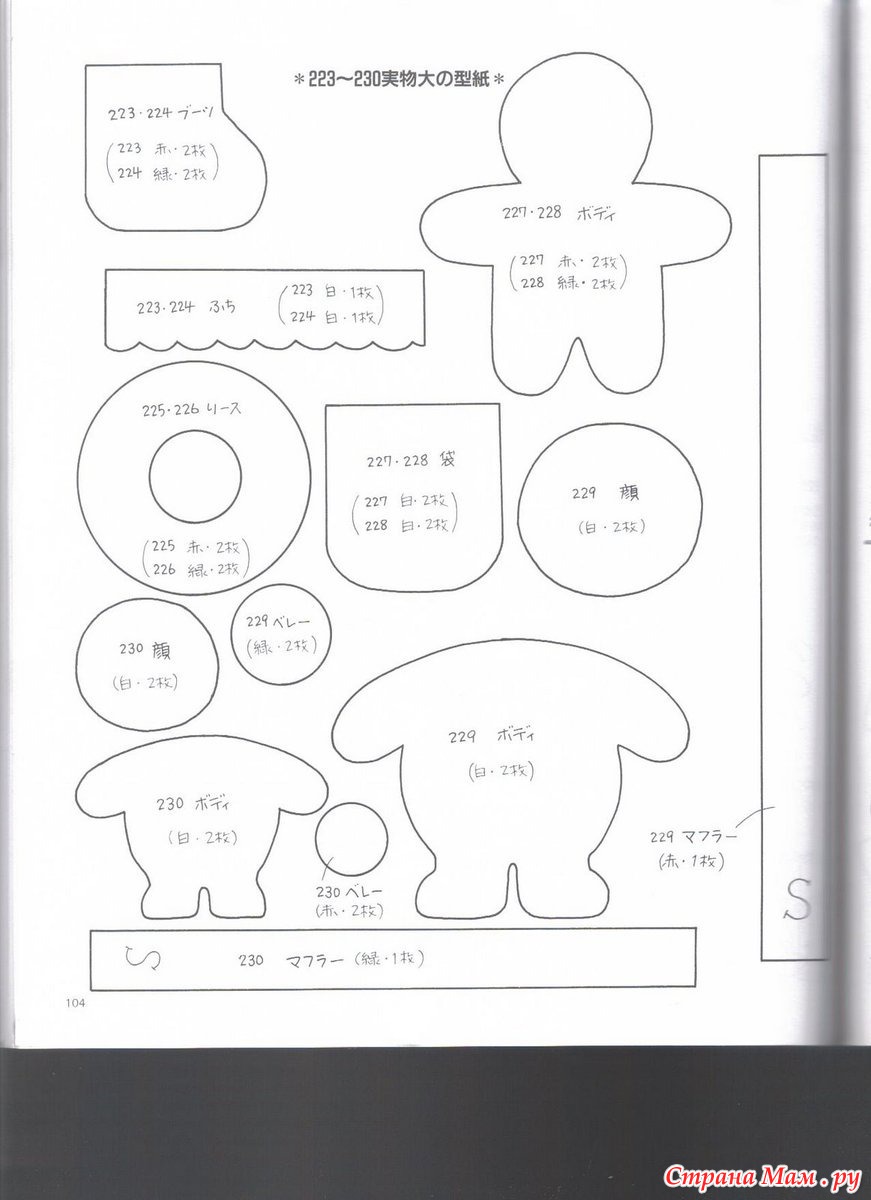 *223〜230実物大の型紙*
223・224 ブーツ
(223 赤・2枚)
(224 緑・2枚)
227・228 ボディ
(227 赤・2枚)
(228 緑・2枚)
223・224 ふち
(223 白・1枚)
(224 白・1枚)
225・226 リース
(225 赤・2枚)
(226 緑・2枚)
227・228 袋
(227 白・2枚)
(228 白・2枚)
229 顔
(白・2枚)
229 ベレー
(緑・2枚)
230 顔
(白・2枚)
229 ボディ
(白・2枚)
230 ボディ
(白・2枚)
229 マフラー
(赤・1枚)
230 ベレー
(赤・2枚)
S
S
230 マフラー (緑・1枚)
104
Страна Мам.ру